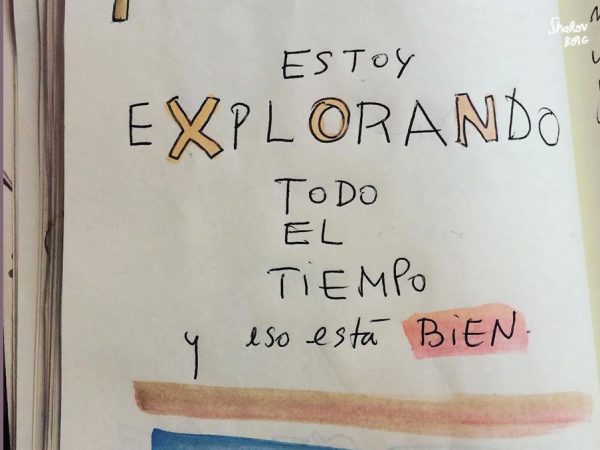 Sharov
Borg
ESTOY
EXPLORANDO
TODO
EL
TIEMPO
y eso está BiEN.